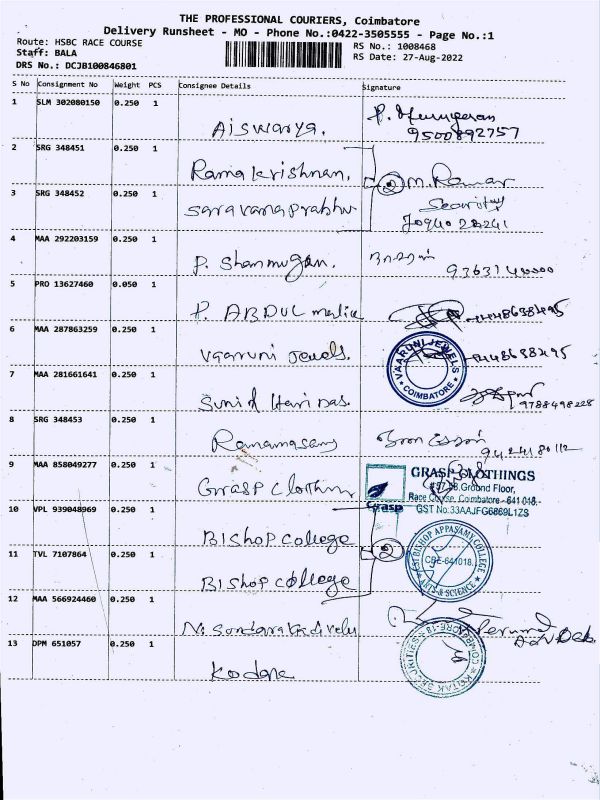 THE PROFESSIONAL COURIERS, Coimbatore
Delivery Runsheet - MO - Phone No.:0422-3505555 - Page No.:1
Route: HSBC RACE COURSE
Staff: BALA
DRS No.: DCJB100846801
RS No.: 1008468
RS Date: 27-Aug-2022
S No Consignment No Weight PCS Consignee Details Signature
1 SLM 302080150 0.250 1 Aiswarya.
9500892757
2 SRG 348451 0.250 1 Ramakrishnan.
② M. Kumar
3 SRG 348452 0.250 1 Saravanaprabhu
Security
4 MAA 292203159 0.250 1 P. Shanmugan.
5 PRO 13627460 0.050 1 P. ABDUL malic
6 MAA 287863259 0.250 1 Vaaruni Jewels.
VAARUNI JEWELS
COIMBATORE
7 MAA 281661641 0.250 1 Sunil Hari Das.
9788498228
8 SRG 348453 0.250 1 Ramamasamy
9 MAA 858049277 0.250 1 Grasp Clothing
Grasp
GRASP CLOTHINGS
Ground Floor,
Race Course, Coimbatore - 641 018.
GST No:33AAJFG6869L1ZS
10 VPL 939048969 0.250 1 Bishop College
②
BISHOP APPASAMY COLLEGE
CBE-641018.
ARTS & SCIENCE
11 TVL 7107864 0.250 1 Bishop College
12 MAA 566924460 0.250 1 N. Sundara Kadivelu
13 DPM 651057 0.250 1 Kodak
SECURITIES